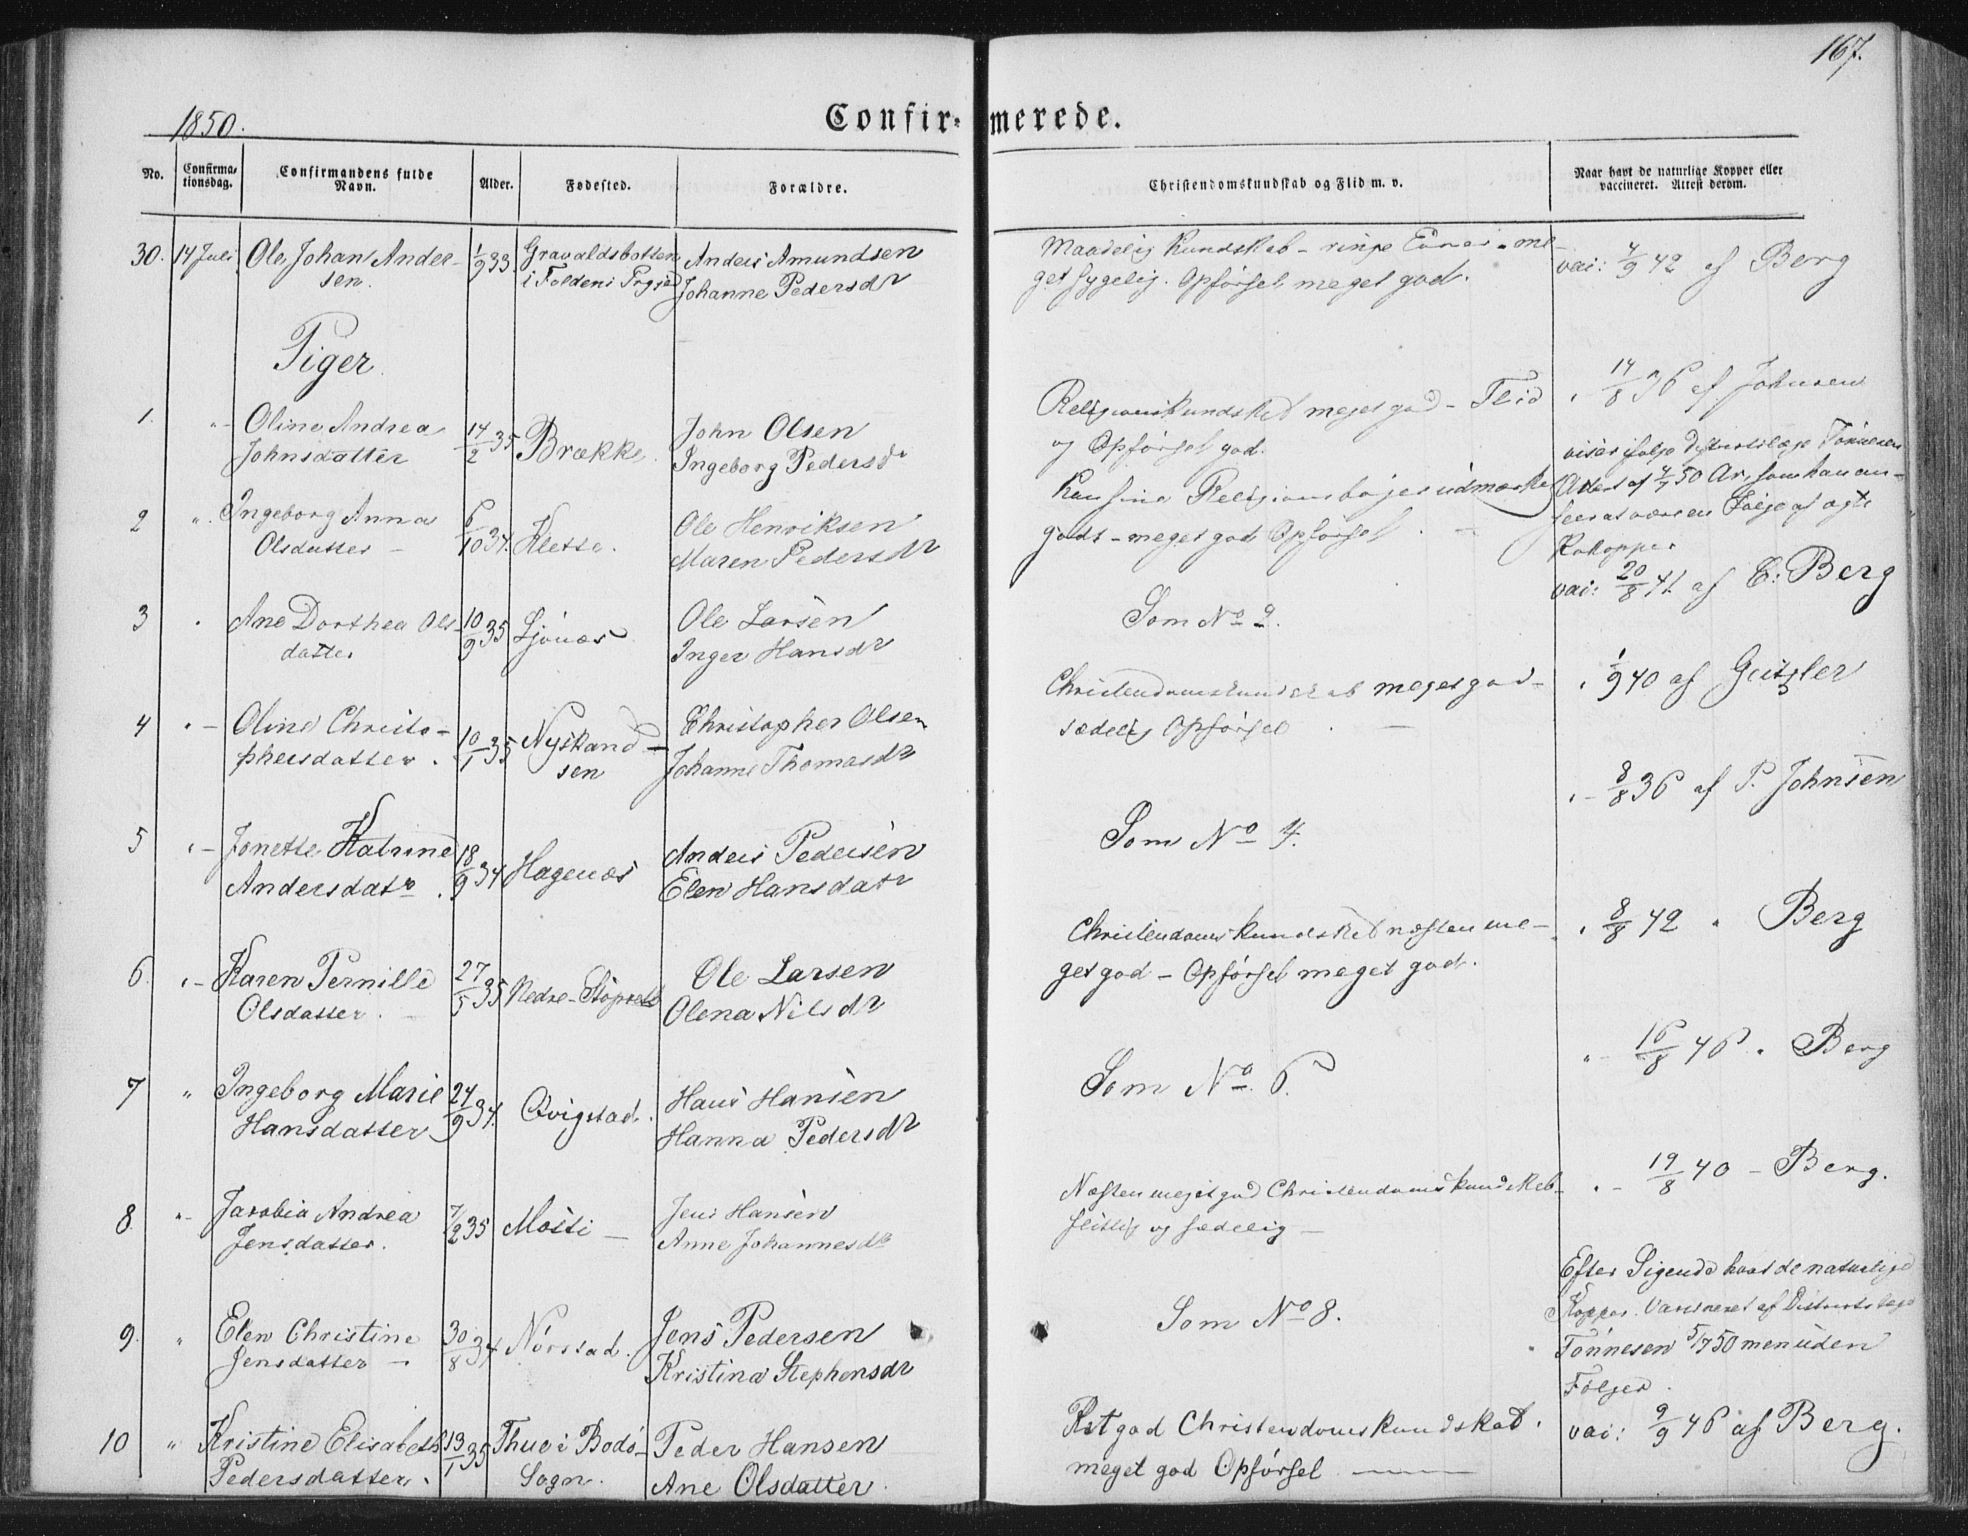 167.
1850.
Confirmerede.
No. Confirmationsdag. Confirmandens fulde Navn. Alder. Fødested. Forældre. Christendomskundskab og Flid m. v. Naar havt de naturlige Kopper eller vaccineret. Attest derom.
30. 14 Juli Ole Johan Ander- 1/9 33. Gravaldsbotten Anders Amundsen Maadelig Kundskab - ringe Evner - me-
sen. i Foldens Prgjd Johanne Pedersdr get sygelig. Opførsel meget god. vac: 4/9 42 af Berg
Piger.
1. "- Oline Andrea 14/2 35 Brække. John Olsen Religionskundskab meget god - Flid " 14/8 36 af Johnsen
Johnsdatter Ingeborg Pedersdr og Opførsel god.
2 ". Ingeborg Anna 6/10 34. Klette. Ole Henriksen Kan sine Religionsbøger udmærket viser ifølge Districtslæge Tønnesens
Olsdatter - Maren Pedersdr godt - meget god Opførsel Attest af 4/7 50 Ar, som han an-
seer at være en Følge af ægte
Kokopper
3 " Ane Dorthea Ols- 10/9 35 Ljønæs Ole Larsen Som No 2. vac: 20/8 42 af C: Berg
datter Inger Hansdr
4 " - Oline Christo- 10/1 35 Nystrand- Christopher Olsen Christendomskundskab meget god - " 1/9 40 af Geitzler
phersdatter. sen Johanne Thomasdr sædelig Opførsel
5 " - Jonette Katrine 18/9 34 Hagenæs Anders Pedersen Som No 4. " - 8/8 36 af P. Johnsen
Andersdatr. Elen Hansdatr
6. " - Karen Pernille 27/5 35 Nedre- Ole Larsen Christendomskundskab næsten me- " 8/8 42 " Berg
Olsdatter. Olena Nilsdr get god - Opførsel meget god.
7 " Ingeborg Marie 24/9 34. Qvigstad. Hans Hansen Som No. 6. " - 16/8 46 " Berg
Hansdatter Hanna Pedersdr
8 "- Jacobia Andrea 7/2 35 Mosti - Jens Hansen Næsten meget god Christendomskundskab- " - 19/8 40 - Berg.
Jensdatter. Anne Johannesdr flittig og sædelig -
9. " Elen Christine 30/8 34 Nørstad. Jens Pedersen Som No 8. Efter Sigende havt de naturlige
Jensdatter - Kristina Stephensdr Kopper. Vaccineret af Districtslæge
Tønnesen 5/7 50 men uden
Følger.
10 " Kristine Elisabeth 13/1 35 Thue i Bodø- Peder Hansen Ret god Christendomskundskab. vac: 9/9 46 af Berg.
Pedersdatter. Sogn. Ane Olsdatter meget god Opførsel